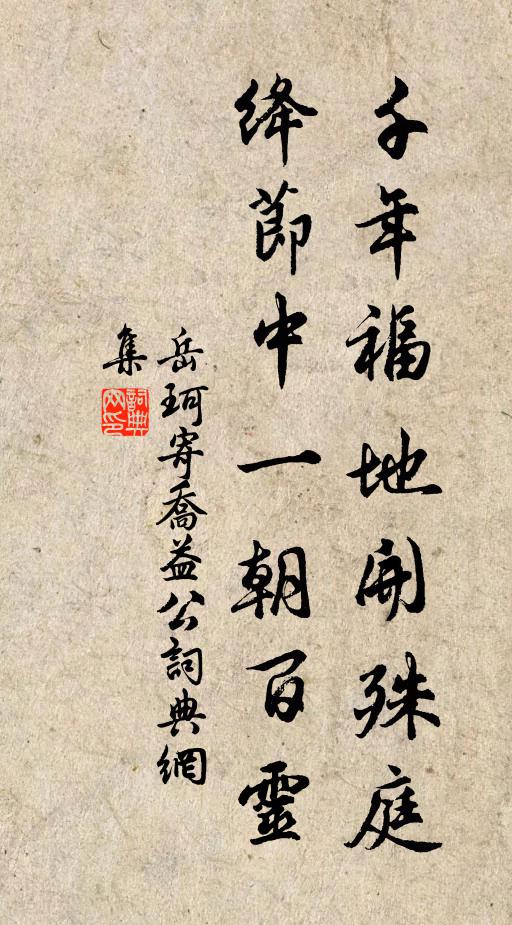 千年福地開殊庭
絳節中一朝百靈
岳珂寄喬益公詞典網
集
詞典網印